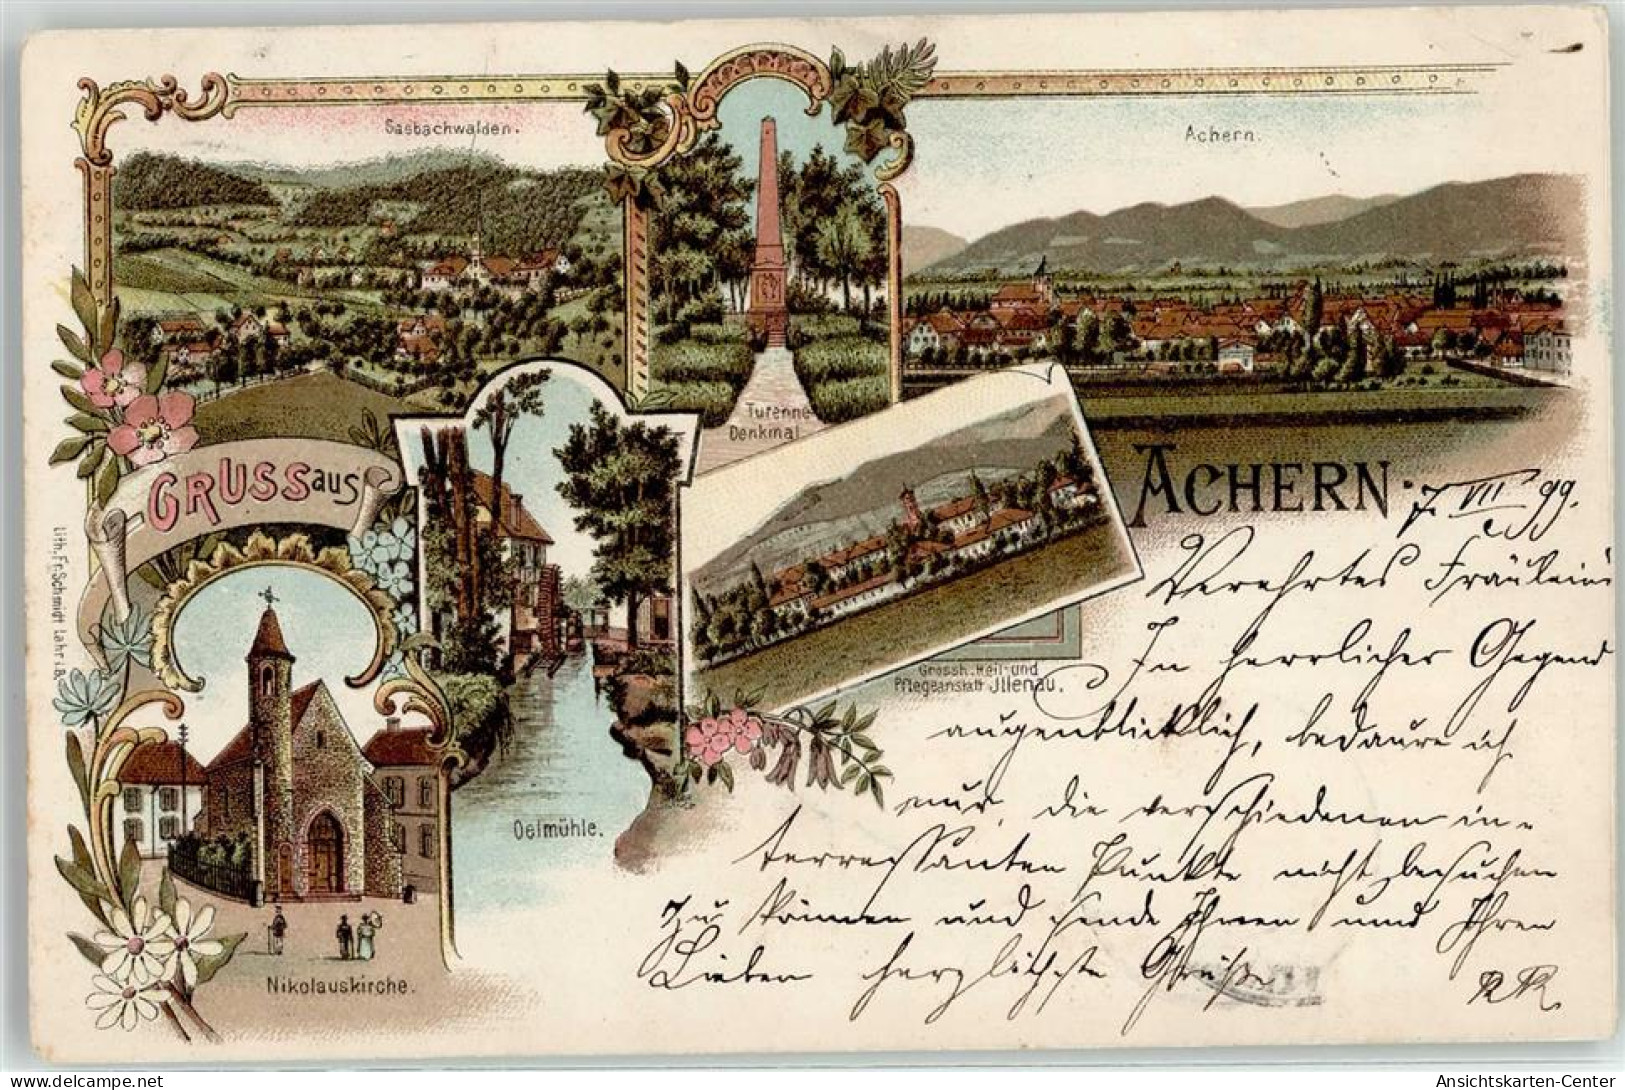 Sasbachwalden.
Achern.
Turenne-
Denkmal
GRUSS aus
ACHERN.
7. VII 99.
Lith. Fr. Schmidt Lahr i. B.
Verehrtes Fräulein
In herrlicher Gegend
Grossh. Heil- und
Pflegeanstalt Jllenau.
augenblicklich, bedaure ich
nur, die verschiedenen in-
Oelmühle.
terressanten Punkte nicht besuchen
zu können und sende Ihnen und Ihren
Lieben herzlichste Grüße
Nikolauskirche.
Ansichtskarten-Center